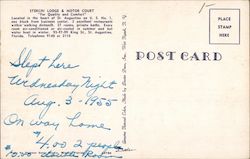 STERLING LODGE & MOTOR COURT
"For Quality and Comfort"
Located in the heart of St. Augustine on U. S. No. 1,
one block from business center. 2 excellent restaurants
within walking distance. 37 rooms, private baths. Every
room air-conditioned or air-cooled in summer and hot
water heat in winter. 95-97-99 King St., St. Augustine,
Florida. Telephone 9148 or 2118
15
POST CARD
PLACE
STAMP
HERE
Slept here
Wednesday Night
Aug. 3 - 1955
On way home
$4.00 2 people